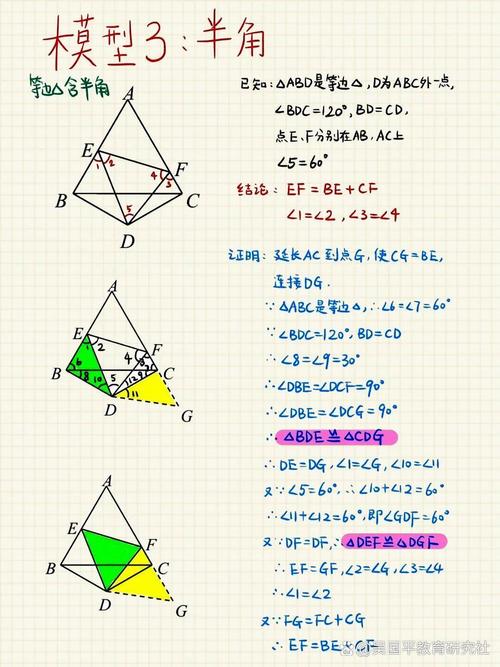 模型3:半角
等边△含半角
已知:△ABD是等边△,D为ABC外一点,
∠BDC=120°,BD=CD,
点E、F分别在AB,AC上
∠5=60°
结论: EF=BE+CF
∠1=∠2,∠3=∠4
A
E
1
2
4
3
F
B
5
C
D
证明: 延长AC到点G,使CG=BE,
连接DG.
∵△ABC是等边△,∴∠6=∠7=60°
∵∠BDC=120°,BD=CD
∴∠8=∠9=30°
∴∠DBE=∠DCF=90°
∴∠DBE=∠DCG=90°
∴△BDE≌△CDG
∴DE=DG,∠1=∠G,∠10=∠11
又∵∠5=60°,∴∠10+∠12=60°
∴∠11+∠12=60°,即∠GDF=60°
又∵DF=DF,∴△DEF≌△DGF
∴EF=GF,∠2=∠G,∠3=∠4
∴∠1=∠2
又∵FG=FC+CG
∴EF=BE+CF
A
E
1
2
4
F
B
6
8
10
5
12
9
C
11
D
G
A
E
F
B
C
D
G